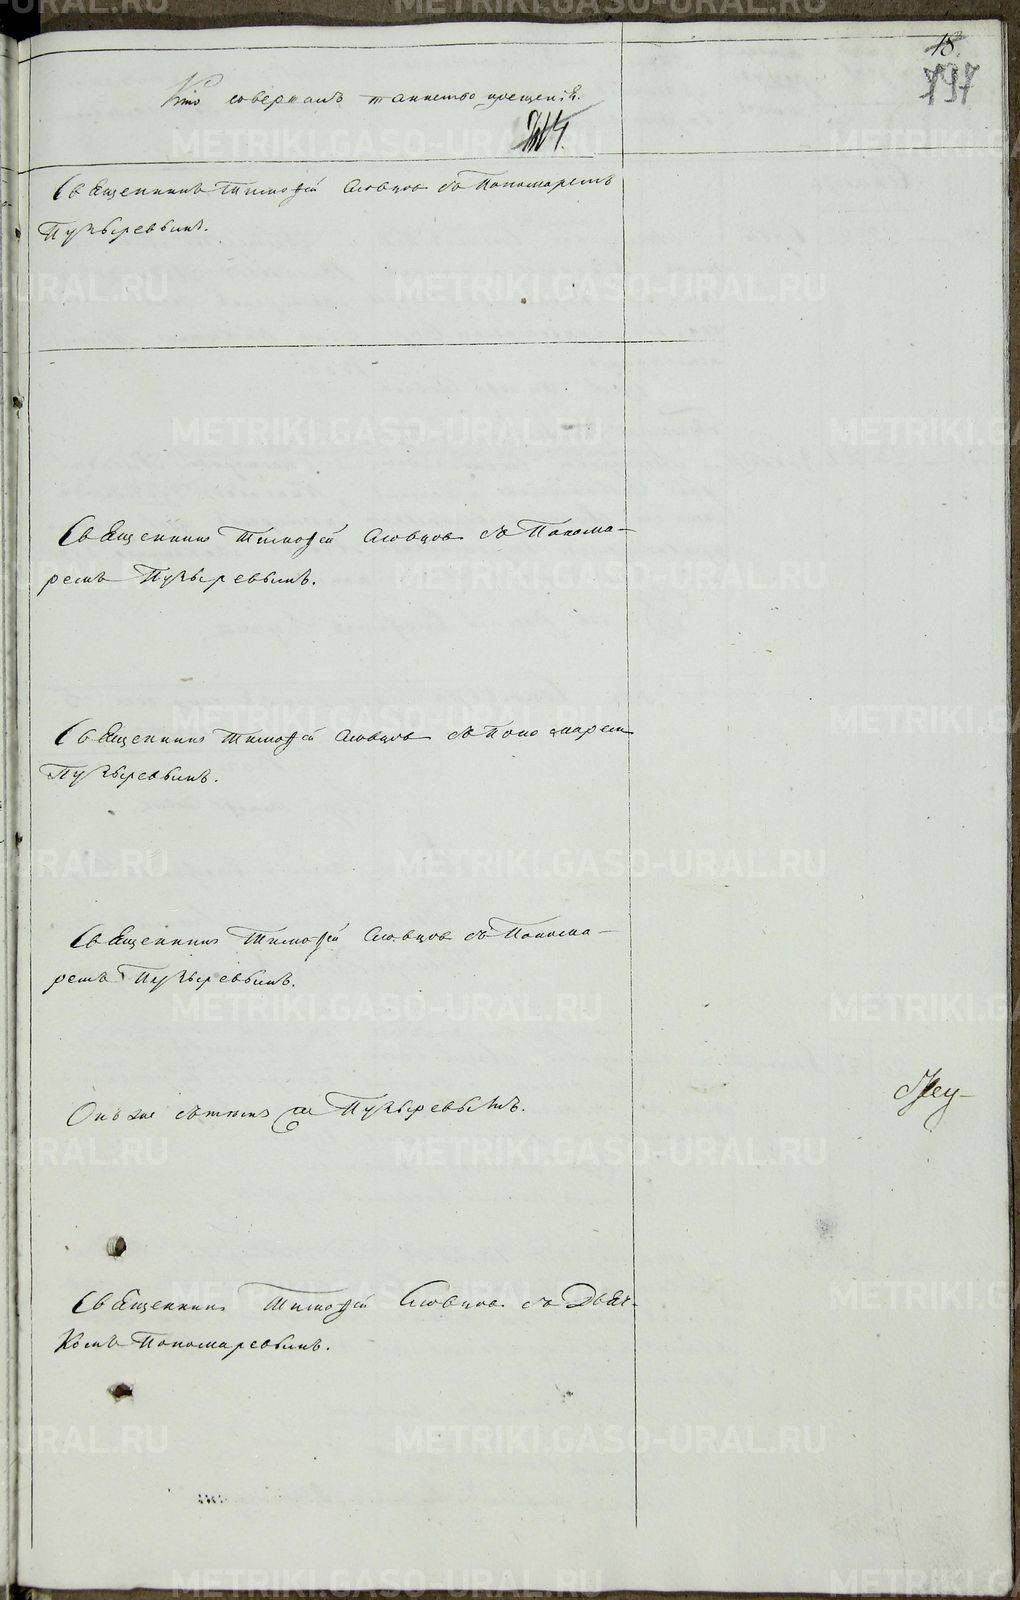 18.
797
Кто совершалъ таинство крещенія.
Священникъ Тимофей Словцов съ Пономаремъ
Пузыревымъ.
Священникъ Тимофей Словцовъ съ Понома-
ремъ Пузыревымъ.
Священникъ Тимофей Словцовъ съ Пономарем
Пузыревымъ.
Священникъ Тимофей Словцов съ Понома-
ремъ Пузыревымъ.
Онъ же съ Пузыревымъ.
Священникъ Тимофей Словцовъ съ Дьяч-
комъ Пономаревымъ.
METRIKI.GASO-URAL.RU